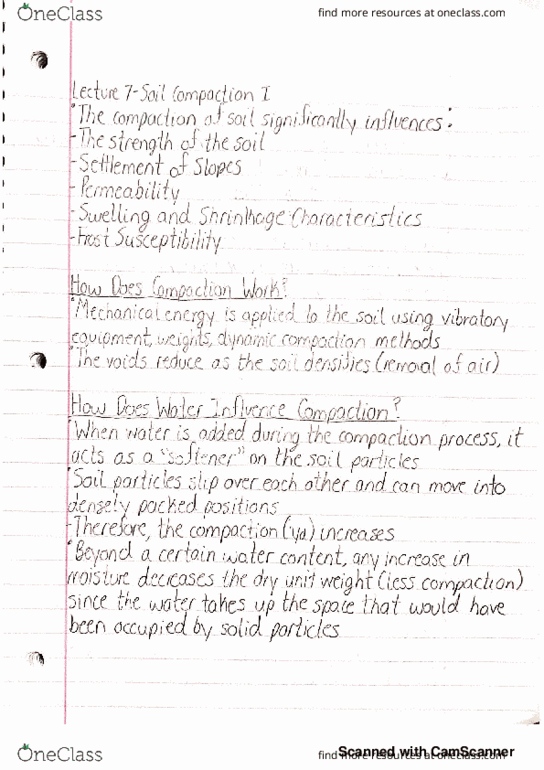 OneClass
find more resources at oneclass.com
Lecture 7-Soil Compaction I
•The compaction of soil significantly influences:
-The strength of the soil
-Settlement of Slopes
-Permeability
-Swelling and Shrinkage Characteristics
-Frost Susceptibility
How Does Compaction Work?
•Mechanical energy is applied to the soil using vibratory
equipment, weights, dynamic compaction methods
•The voids reduce as the soil densifies (removal of air)
How Does Water Influence Compaction?
•When water is added during the compaction process, it
acts as a "softener" on the soil particles
•Soil particles slip over each other and can move into
densely packed positions
-Therefore, the compaction (γd) increases
•Beyond a certain water content, any increase in
moisture decreases the dry unit weight (less compaction)
since the water takes up the space that would have
been occupied by solid particles
OneClass
find more resources at oneclass.com
Scanned with CamScanner